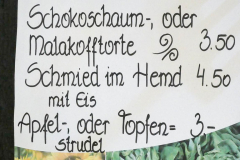 Schokoschaum-, oder
Malakofftorte 3.50
Schmied im Hemd 4.50
mit Eis
Apfel-, oder Topfen= 3-
strudel